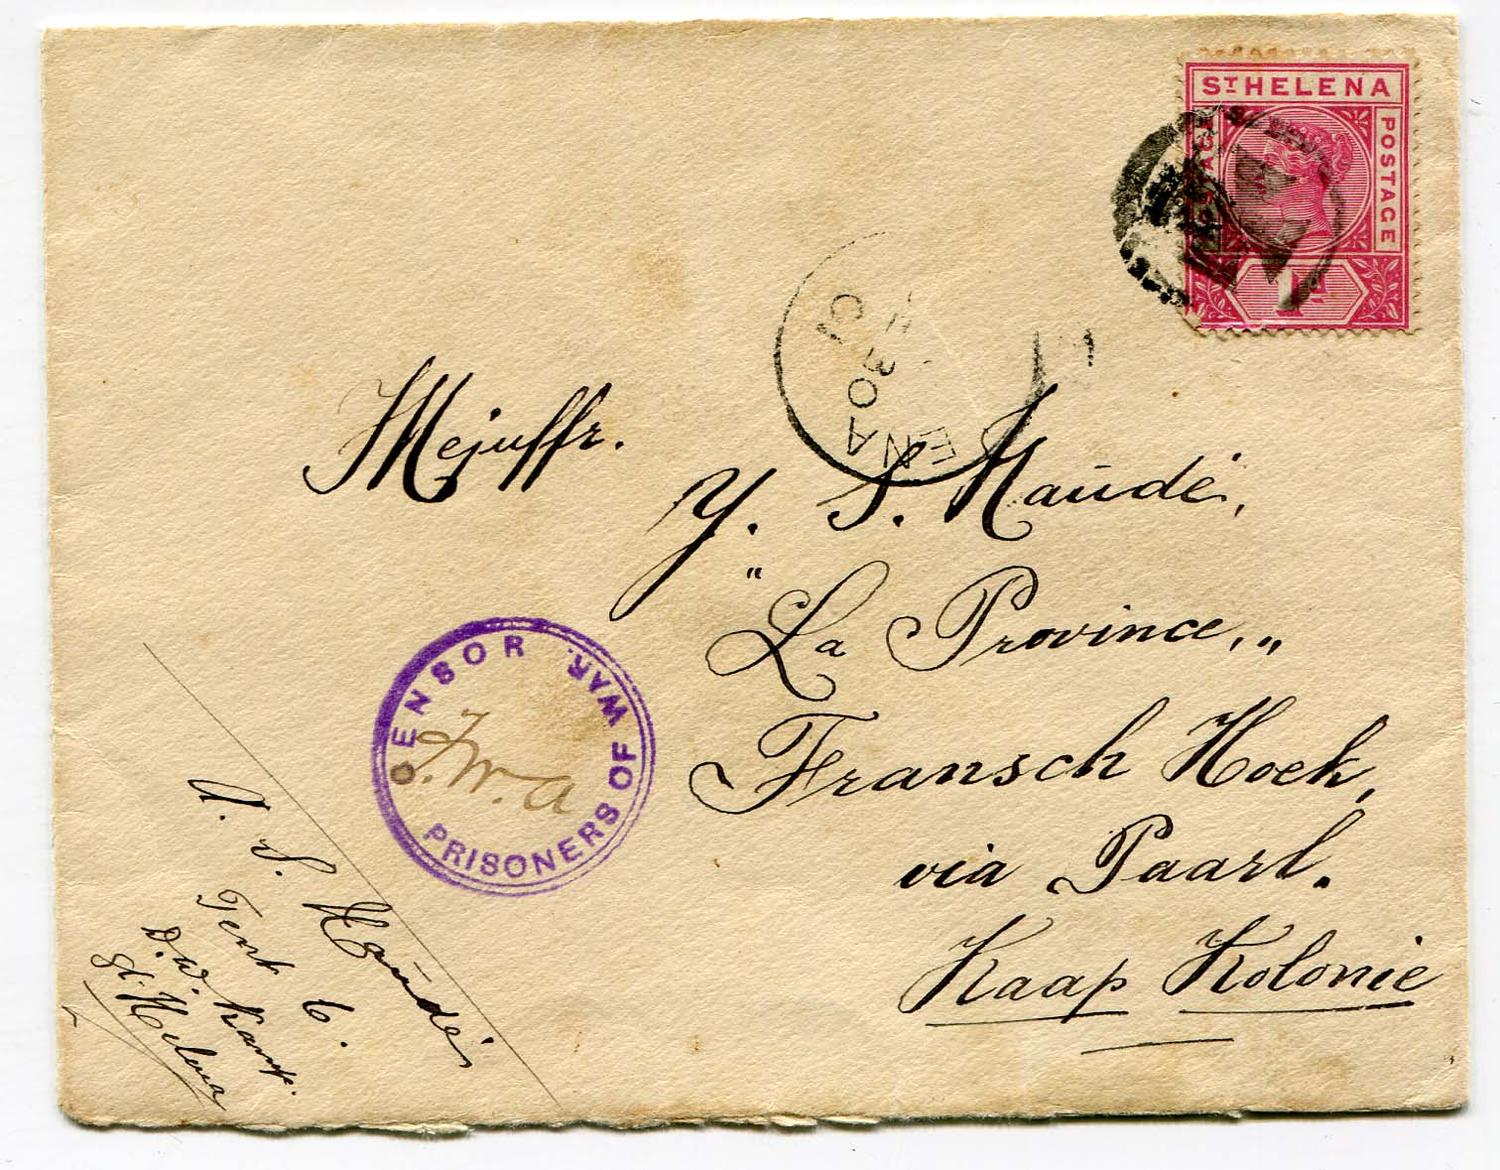 ST HELENA
POSTAGE
POSTAGE
ENA
30
01
Mejuffr.
Y. S. Naudé,
"La Province,"
Fransch Hoek,
via Paarl.
Kaap Kolonie
CENSOR
PRISONERS OF WAR.
A. S. Naudé,
Tent 6.
D.W. Kamp.
St. Helena